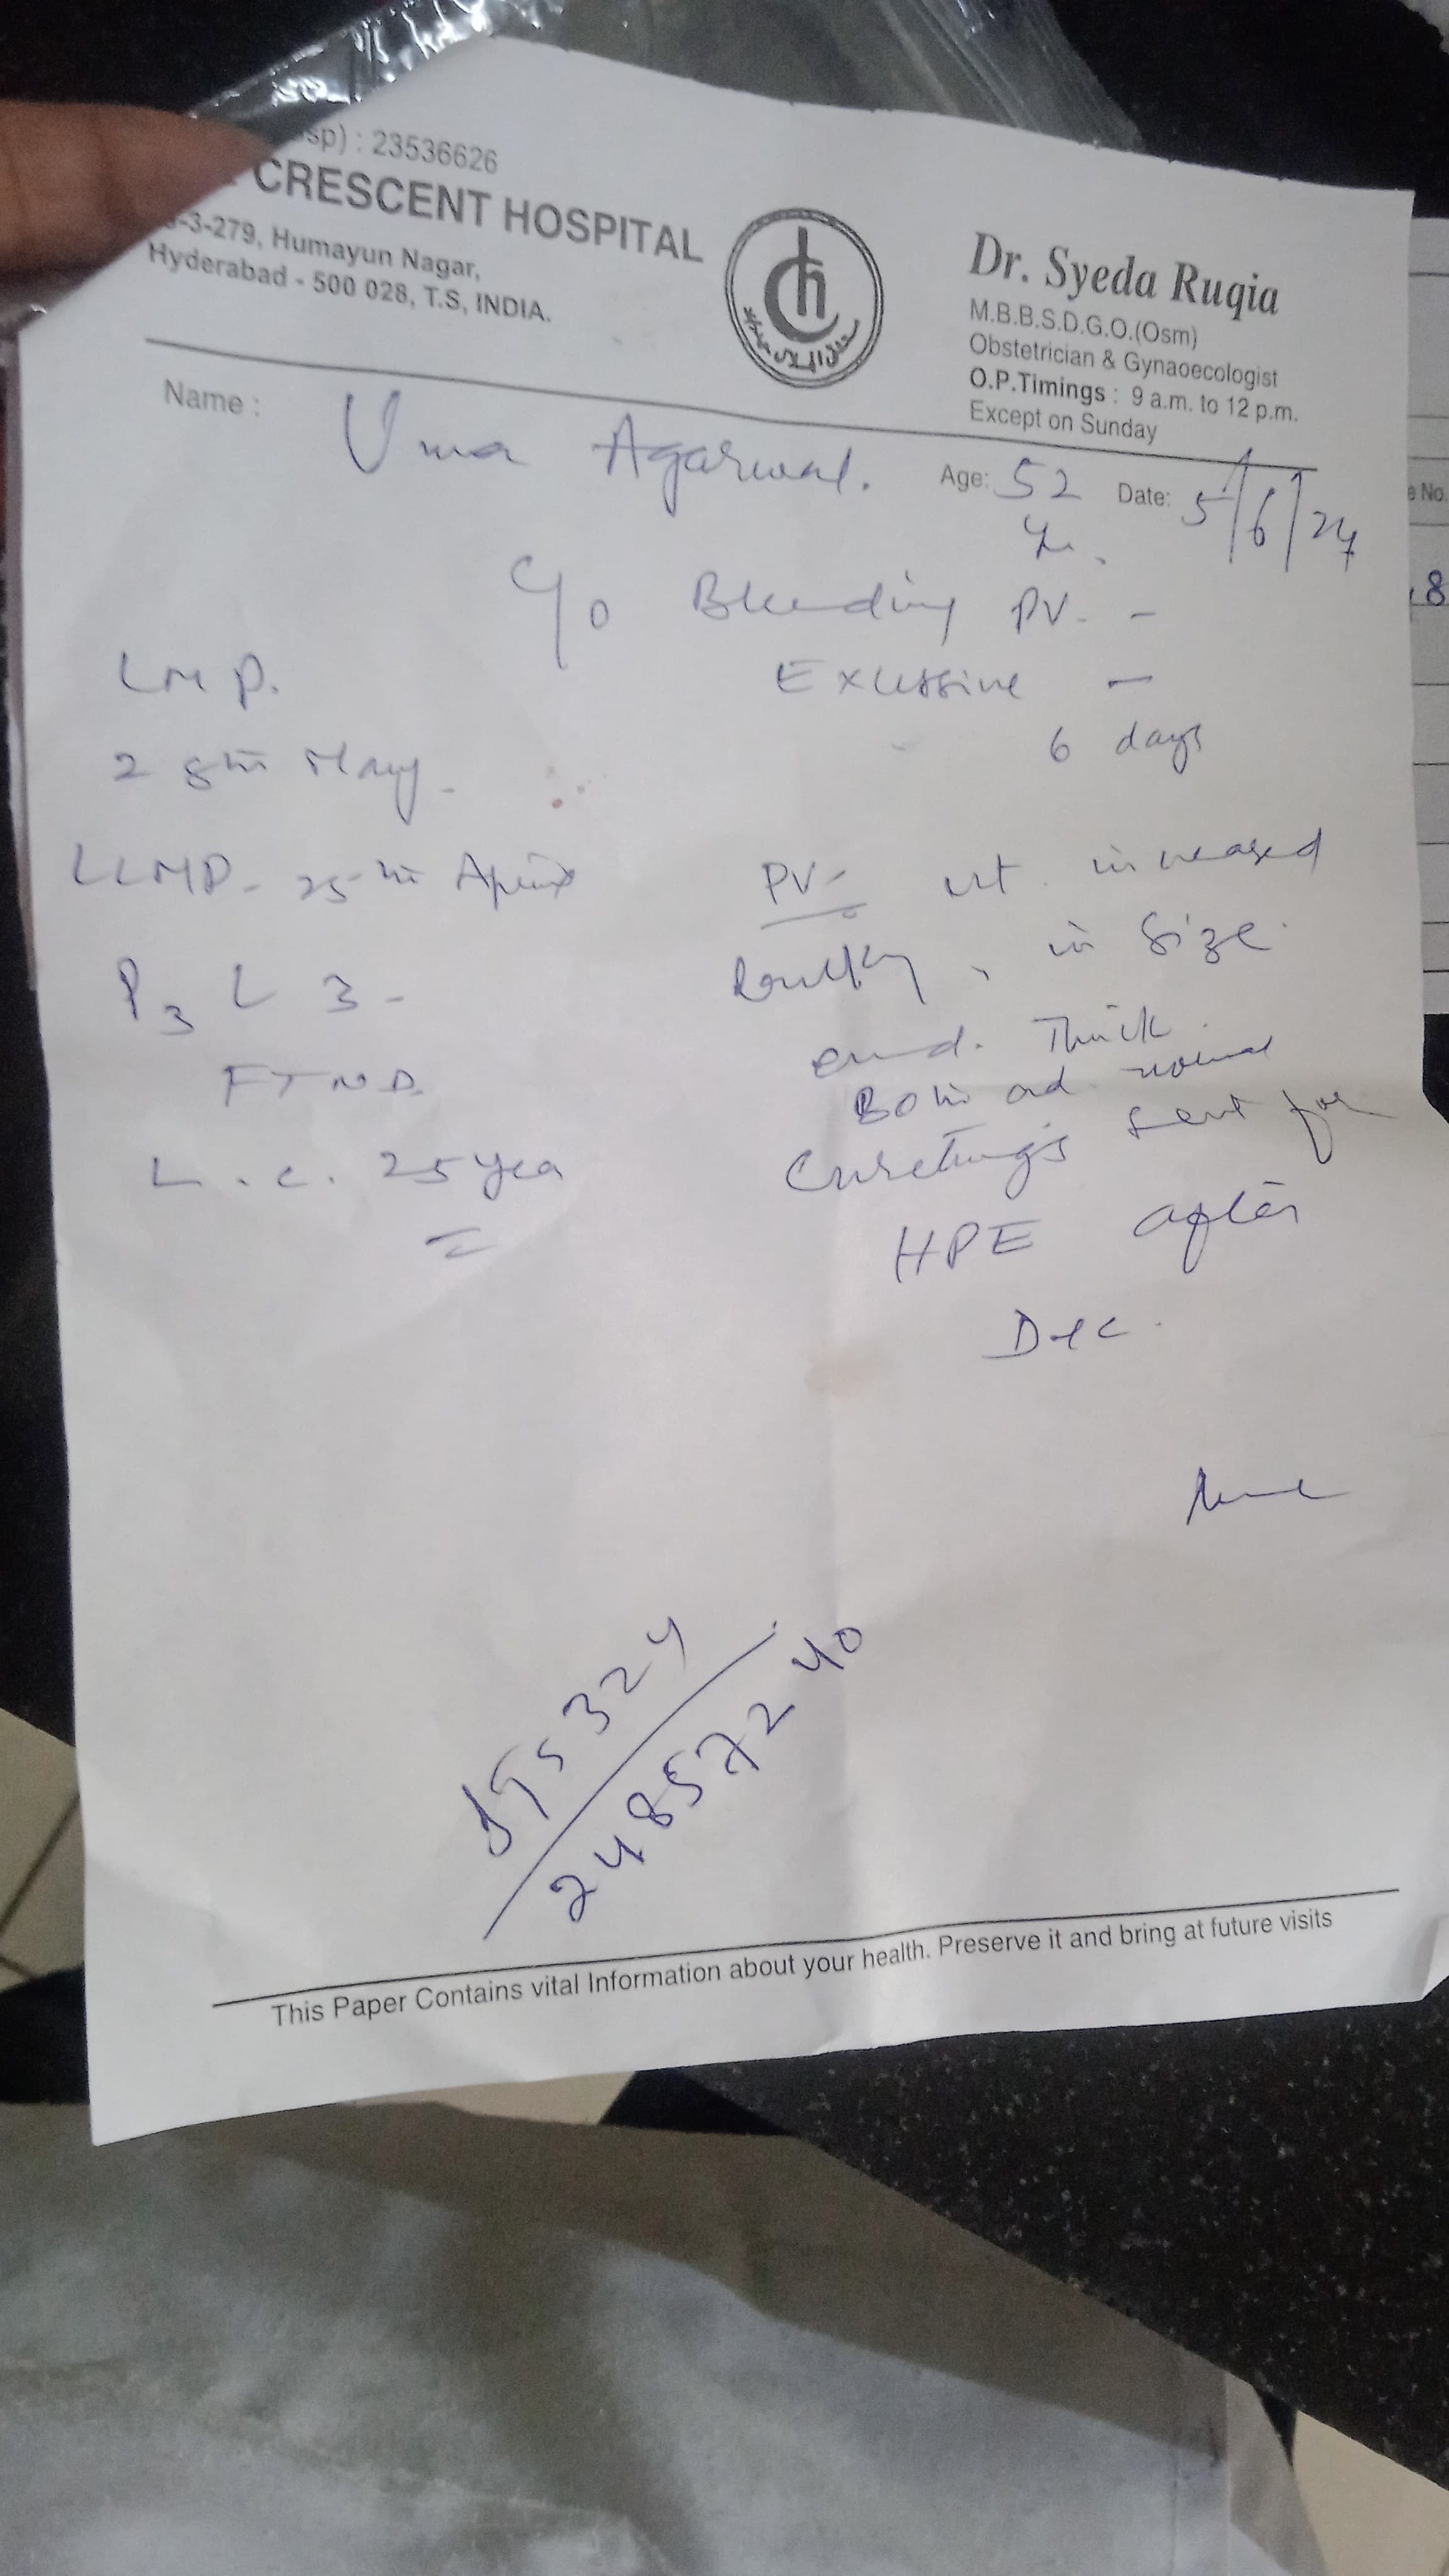 sp) : 23536626
CRESCENT HOSPITAL
-3-279, Humayun Nagar,
Hyderabad - 500 028, T.S, INDIA.
Dr. Syeda Ruqia
M.B.B.S.D.G.O.(Osm)
Obstetrician & Gynaoecologist
O.P.Timings : 9 a.m. to 12 p.m.
Except on Sunday
Name : Uma Agarwal.
Age: 52 Date: 5/6/24
C/o Bleeding PV. -
Excessive -
6 days
LMP.
28th May -
LLMP - 25th April
P3 L3 -
FTND.
L.C. 25 yea
PV - ut. increased
bulky, in size.
end. Thick.
Both ad. normal
Curettings sent for
HPE after
D&C.
24857240
This Paper Contains vital Information about your health. Preserve it and bring at future visits
e No.
8